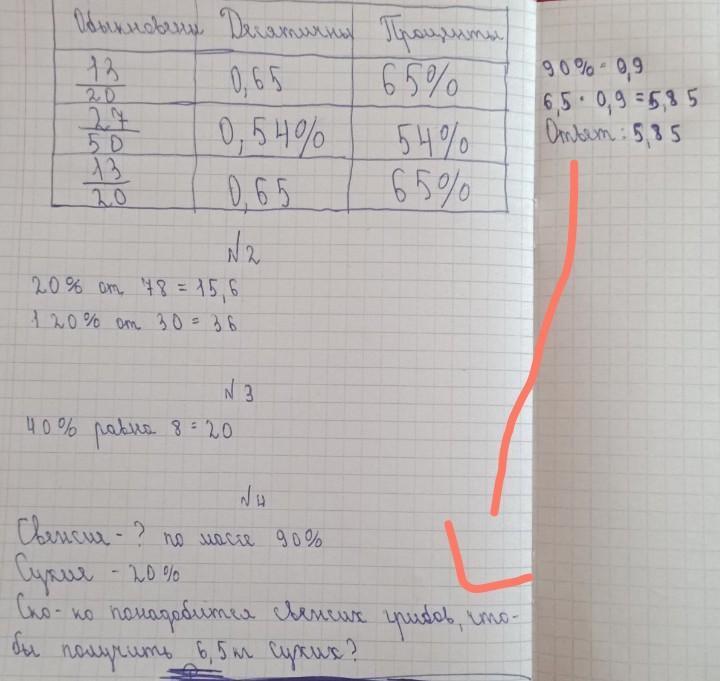 Обыкновенн Десятичны Проценты
13/20 0,65 65%
27/50 0,54% 54%
13/20 0,65 65%
N2
20% от 78 = 15,6
120% от 30 = 36
N3
40% равна 8 = 20
N4
Свежия - ? по массе 90%
Сухия - 20%
Ско-ко понадобится свежих грибов, что-
бы получить 6,5 кг сухих?
90% = 0,9
6,5 · 0,9 = 5,85
Ответ: 5,85